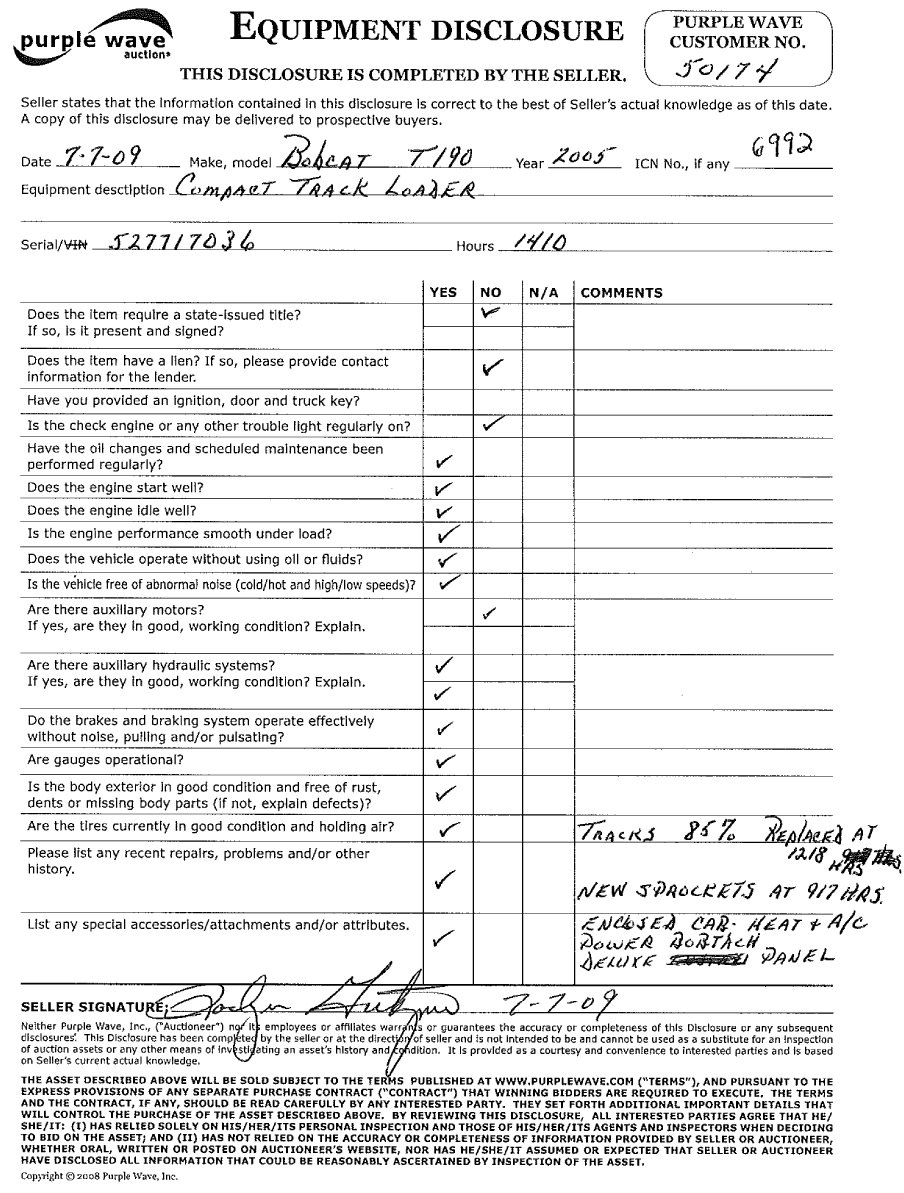 purple wave
auction®
EQUIPMENT DISCLOSURE
PURPLE WAVE
CUSTOMER NO.
50174
THIS DISCLOSURE IS COMPLETED BY THE SELLER.
Seller states that the information contained in this disclosure is correct to the best of Seller's actual knowledge as of this date.
A copy of this disclosure may be delivered to prospective buyers.
Date 7-7-09 Make, model BobCAT T190 Year 2005 ICN No., if any 6992
Equipment desctiption COMPACT TRACK LOADER
Serial/VIN 527717036 Hours 1410
YES NO N/A COMMENTS
Does the item require a state-issued title? ✓
If so, is it present and signed?
Does the item have a lien? If so, please provide contact
information for the lender. ✓
Have you provided an ignition, door and truck key?
Is the check engine or any other trouble light regularly on? ✓
Have the oil changes and scheduled maintenance been
performed regularly? ✓
Does the engine start well? ✓
Does the engine idle well? ✓
Is the engine performance smooth under load? ✓
Does the vehicle operate without using oil or fluids? ✓
Is the vehicle free of abnormal noise (cold/hot and high/low speeds)? ✓
Are there auxiliary motors? ✓
If yes, are they in good, working condition? Explain.
Are there auxiliary hydraulic systems? ✓
If yes, are they in good, working condition? Explain. ✓
Do the brakes and braking system operate effectively
without noise, pulling and/or pulsating? ✓
Are gauges operational? ✓
Is the body exterior in good condition and free of rust,
dents or missing body parts (if not, explain defects)? ✓
Are the tires currently in good condition and holding air? ✓ TRACKS 85% REPLACED AT
1218 HRS
Please list any recent repairs, problems and/or other
history. ✓
NEW SPROCKETS AT 917 HRS.
List any special accessories/attachments and/or attributes. ✓ ENCLOSED CAB- HEAT + A/C
POWER BOBTACH
DELUXE PANEL
SELLER SIGNATURE: 7-7-09
Neither Purple Wave, Inc., ("Auctioneer") nor its employees or affiliates warrants or guarantees the accuracy or completeness of this Disclosure or any subsequent
disclosures. This Disclosure has been completed by the seller or at the direction of seller and is not intended to be and cannot be used as a substitute for an inspection
of auction assets or any other means of investigating an asset's history and condition. It is provided as a courtesy and convenience to interested parties and is based
on Seller's current actual knowledge.
THE ASSET DESCRIBED ABOVE WILL BE SOLD SUBJECT TO THE TERMS PUBLISHED AT WWW.PURPLEWAVE.COM ("TERMS"), AND PURSUANT TO THE
EXPRESS PROVISIONS OF ANY SEPARATE PURCHASE CONTRACT ("CONTRACT") THAT WINNING BIDDERS ARE REQUIRED TO EXECUTE. THE TERMS
AND THE CONTRACT, IF ANY, SHOULD BE READ CAREFULLY BY ANY INTERESTED PARTY. THEY SET FORTH ADDITIONAL IMPORTANT DETAILS THAT
WILL CONTROL THE PURCHASE OF THE ASSET DESCRIBED ABOVE. BY REVIEWING THIS DISCLOSURE, ALL INTERESTED PARTIES AGREE THAT HE/
SHE/IT: (I) HAS RELIED SOLELY ON HIS/HER/ITS PERSONAL INSPECTION AND THOSE OF HIS/HER/ITS AGENTS AND INSPECTORS WHEN DECIDING
TO BID ON THE ASSET; AND (II) HAS NOT RELIED ON THE ACCURACY OR COMPLETENESS OF INFORMATION PROVIDED BY SELLER OR AUCTIONEER,
WHETHER ORAL, WRITTEN OR POSTED ON AUCTIONEER'S WEBSITE, NOR HAS HE/SHE/IT ASSUMED OR EXPECTED THAT SELLER OR AUCTIONEER
HAVE DISCLOSED ALL INFORMATION THAT COULD BE REASONABLY ASCERTAINED BY INSPECTION OF THE ASSET.
Copyright © 2008 Purple Wave, Inc.